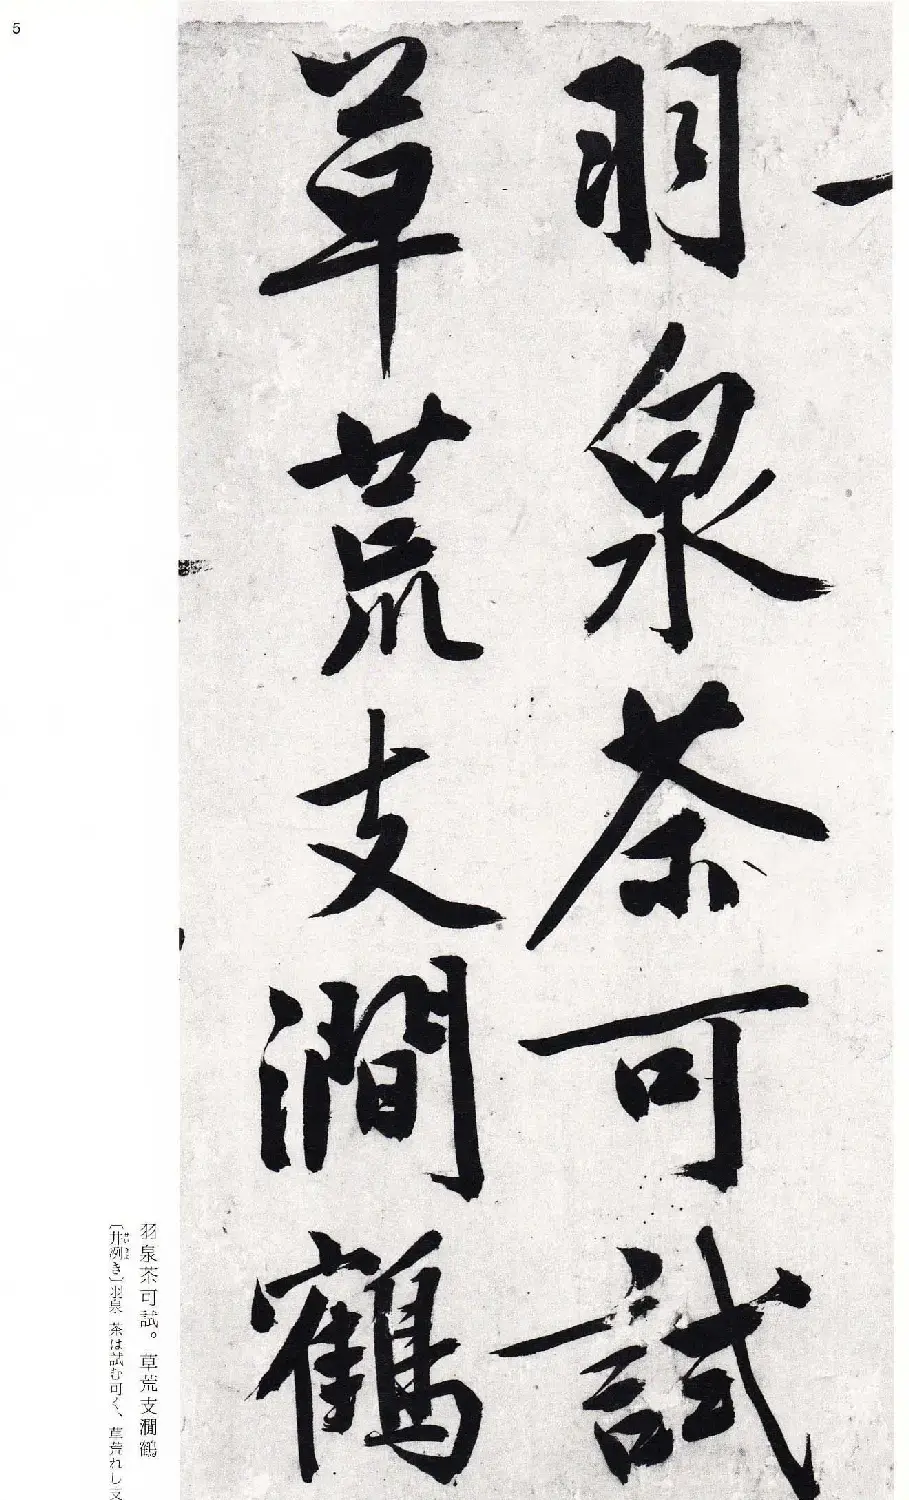 5
羽泉茶可試
草荒支澗鶴
羽泉茶可試。草荒支澗鶴
〔井冽き〕羽泉 茶は試む可く、草荒れし支